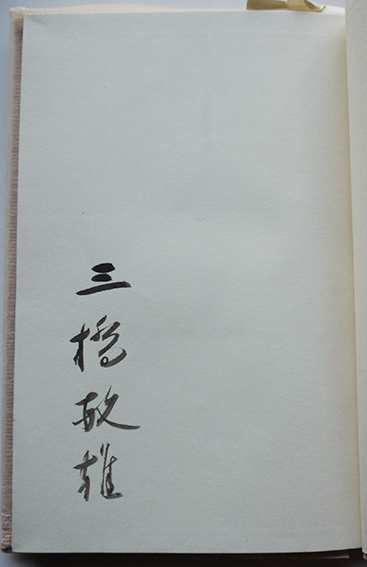 三橋敏雄